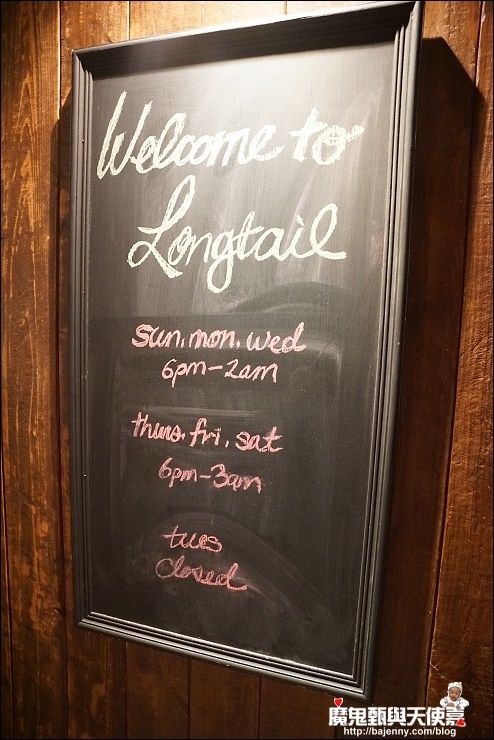 Welcome to
Longtail
sun, mon, wed
6pm-2am
thurs, fri, sat
6pm-3am
tues
closed
魔鬼甄與天使嘉
http://bajenny.com/blog